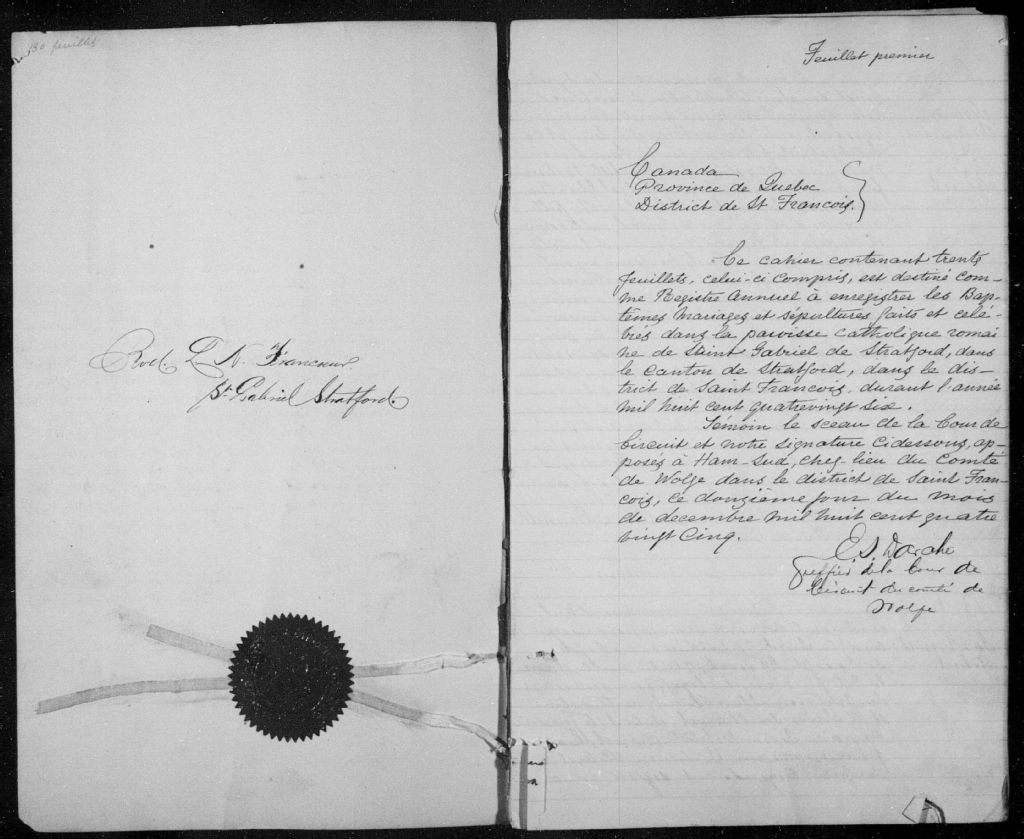 30 feuillets
Rvd. L. N. Francoeur
St Gabriel Stratford.
Feuillet premier
Canada
Province de Quebec
District de St Francois.
Ce cahier contenant trente
feuillets, celui-ci compris, est destiné com-
me Registre Annuel à enregistrer les Bap-
têmes Mariages et sépultures faits et célé-
brés dans la paroisse catholique romai
ne de Saint Gabriel de Stratford, dans
le canton de Stratford, dans le dis-
trict de Saint Francois, durant l'année
mil huit cent quatrevingt six.
Témoin le sceau de la Cour de
Circuit et notre signature cidessous, ap-
posés à Ham-Sud, chef-lieu du Comté
de Wolfe dans le district de Saint Fran-
cois, ce douzième jour du mois
de decembre mil huit cent quatre
vingt cinq.
Greffier de la Cour de
Circuit du comté de
Wolfe